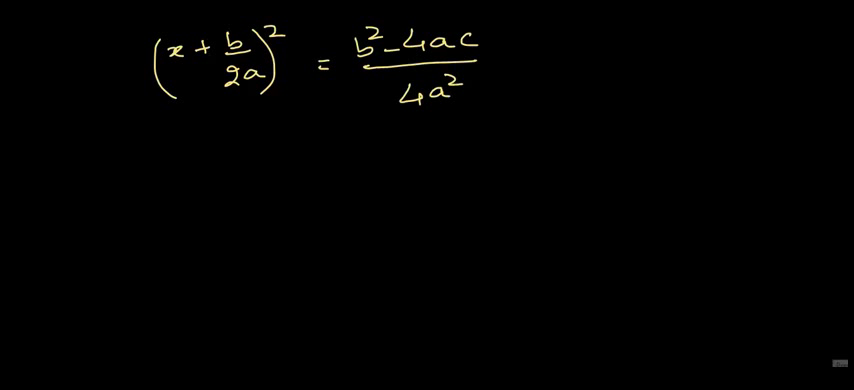 (x + b/2a)² = b² - 4ac / 4a²